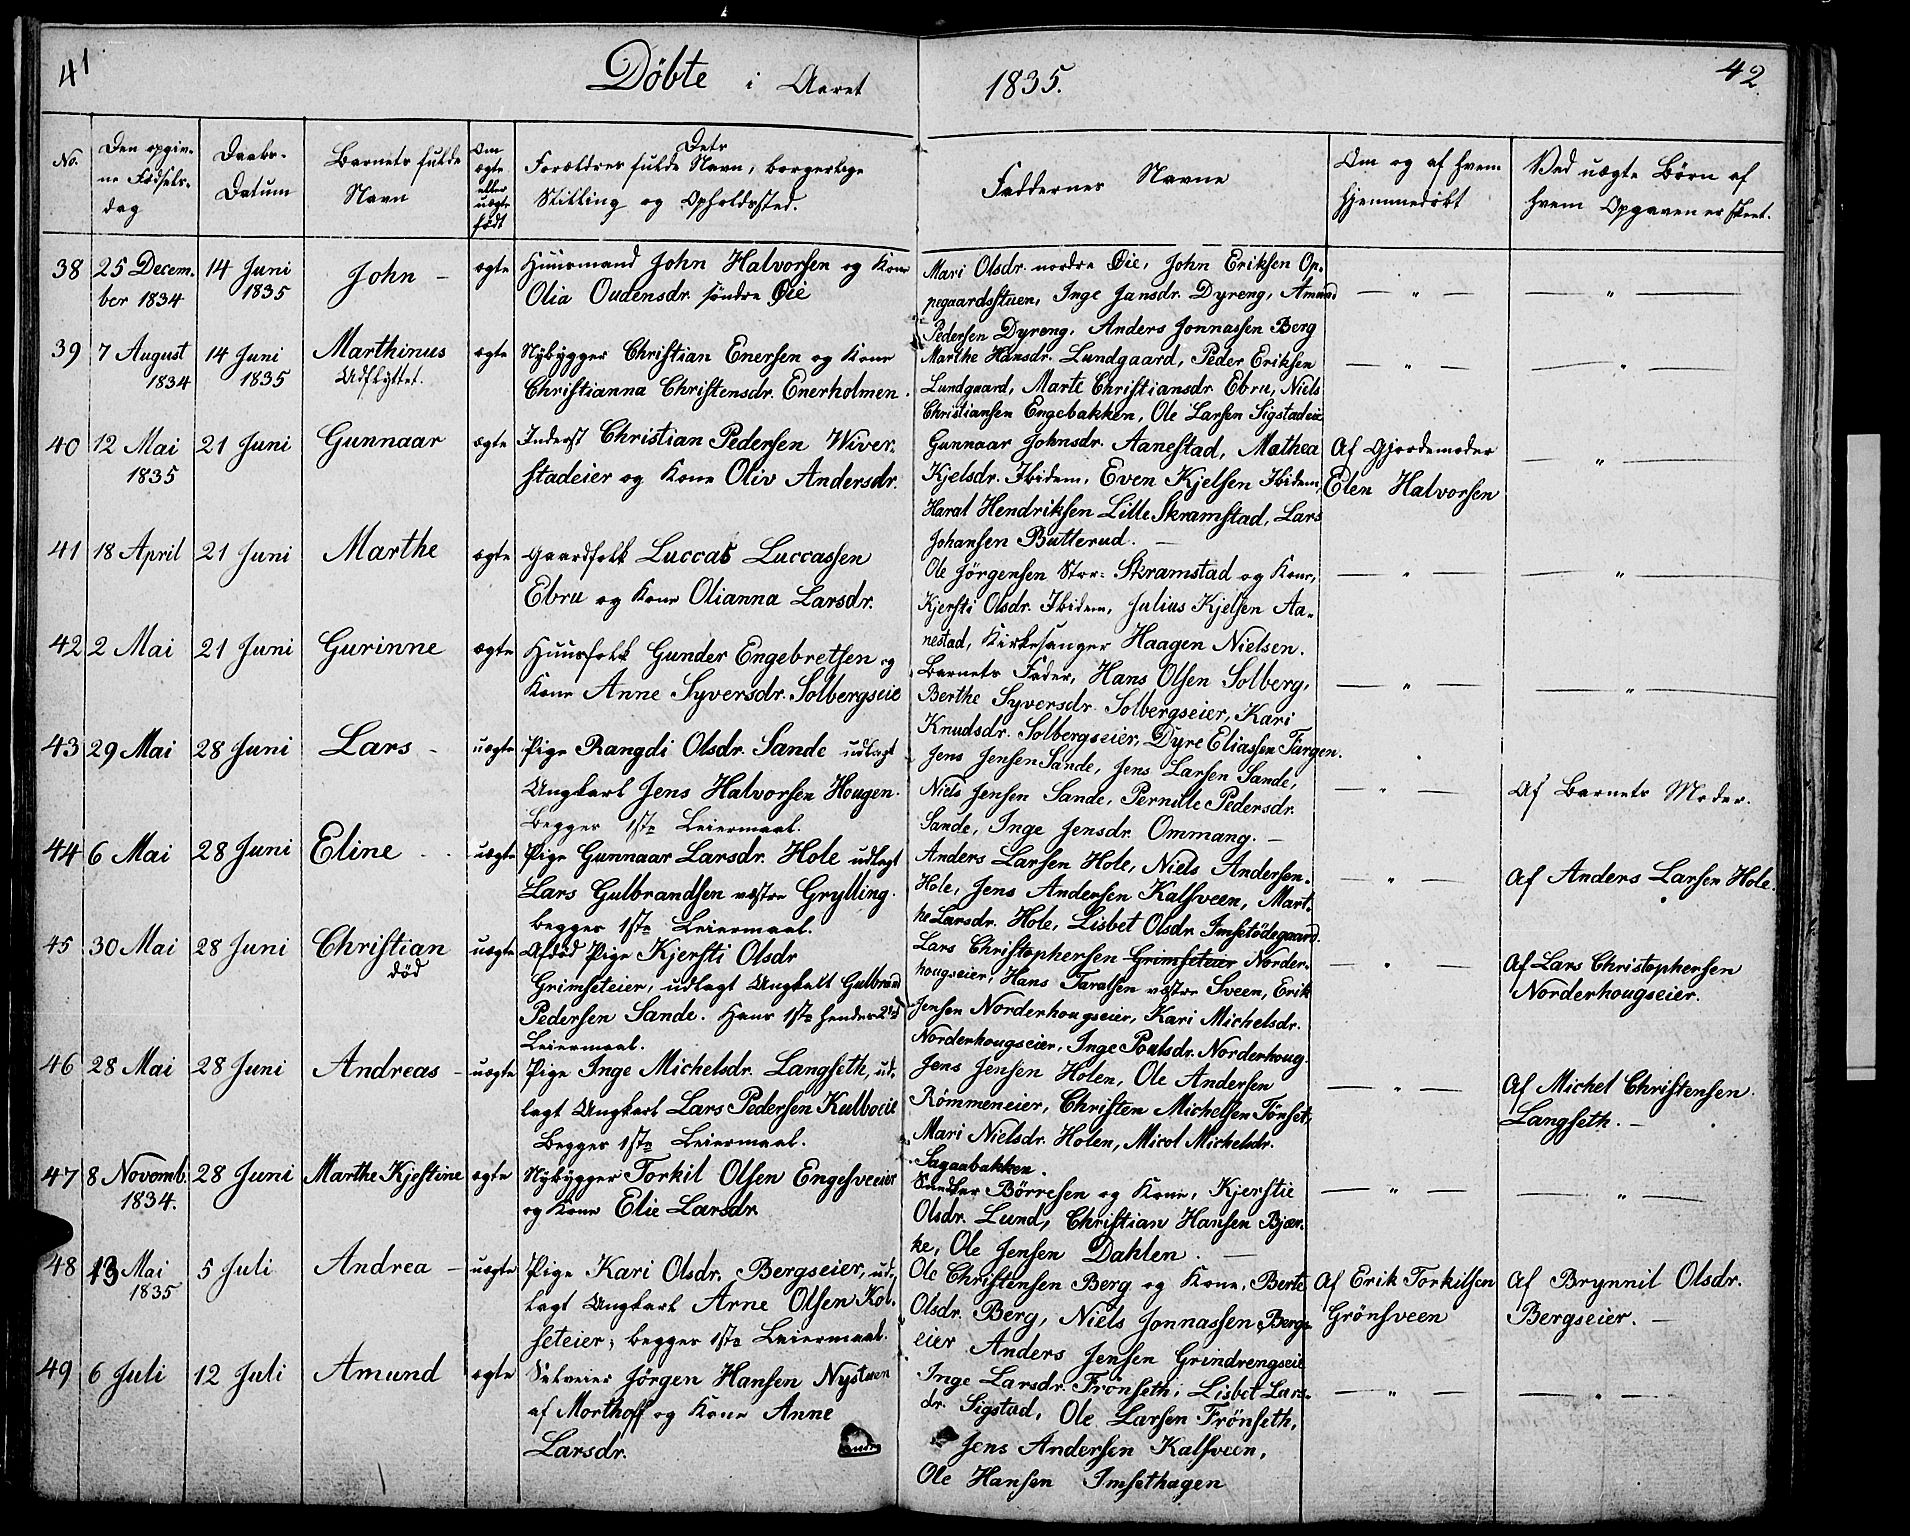 41
Döbte i Aaret 1835.
42.
No.
Den opgiv-
ne Födsels-
dag
Daabs-
Datum
Barnets fulde
Navn
Om
ægte
eller
uægte
födt
Forældres fulde Navn, borgerlige
Stilling og Opholdssted.
Faddernes Navne
Om og af hvem
hjemmedöbt
Ved uægte Börn af
hvem Opgaven er skeet.
38
25 Decem-
ber 1834
14 Juni
1835
John –
ægte
Huusmand John Halvorsen og Kone
Olia Oudensdr. söndre Öie
Mari Olsdr. nordre Öie, John Eriksen Op-
pegaardsstuen, Inge Jansdr. Dyreng, Amund
Pedersen Dyreng, Anders Jonnassen Berg
39
7 August
1834
14 Juni
1835
Marthinus
Udflyttet.
ægte
Nybygger Christian Enersen og Kone
Christianna Christensdr. Enerholmen.
Marthe Hansdr. Lundgaard, Peder Eriksen
Lundgaard, Marte Christiansdr Ebru, Niels
Christiansen Engebakken, Ole Larsen Sigstadeie
40
12 Mai
1835
21 Juni
Gunnaar
ægte
Inderst Christian Pedersen Wiver-
stadeier og Kone Oliv Andersdr.
Gunnaar Johnsdr. Aanestad, Mathea
Kjelsdr. Ibidem, Even Kjelsen Ibidem,
Haral Hendriksen Lille Skramstad, Lars
Johansen Butterud. –
Af Gjordemoder
Elen Halvorsen
41
18 April
21 Juni
Marthe
ægte
Gaardfolk Luccas Luccassen
Ebru og Kone Olianna Larsdr.
Ole Jörgensen Stor-Skramstad og Kone,
Kjersti Olsdr. Ibidem, Julius Kjelsen Aa-
nestad, Kirkesanger Haagen Nielsen.
42
2 Mai
21 Juni
Gurinne
ægte
Huusfolk Gunder Engebretsen og
Kone Anne Syversdr. Solbergseie
Barnets Fader, Hans Olsen Solberg,
Berthe Syversdr. Solbergseier, Kari
Knudsdr. Solbergseier, Dyre Eliassen Färgen.
43
29 Mai
28 Juni
Lars –
uægte
Pige Rangdi Olsdr. Sande udlagt
Ungkarl Jens Halvorsen Hougen.
Begges 1ste Leiermaal.
Jens Jensen Sande, Jens Larsen Sande,
Niels Jensen Sande, Pernille Pedersdr.
Sande, Inge Jensdr. Ommang. –
Af Barnets Moder.
44
6 Mai
28 Juni
Eline
uægte
Pige Gunnaar Larsdr. Hole udlagt
Lars Gulbrandsen vestre Grylling.
begges 1ste Leiermaal.
Anders Larsen Hole, Niels Andersen
Hole, Jens Andersen Kalsveen, Mart-
he Larsdr. Hole, Lisbet Olsdr. Imsetödegaard.
Af Anders Larsen Hole.
45
30 Mai
28 Juni
Christian
död
uægte
Afdöd Pige Kjersti Olsdr
Grimseteier, udlagt Ungkalt Gulbrand
Pedersen Sande. Hans 1ste hendes 2det
Leiermaal.
Lars Christophersen Grimseteier Norder-
hougseier, Hans Taralsen vestre Sveen, Erik
Jensen Norderhougseier, Kari Michelsdr.
Norderhougseier, Inge Poulsdr. Norderhoug.
Af Lars Christophersen
Norderhougseier.
46
28 Mai
28 Juni
Andreas –
uægte
Pige Inge Michelsdr. Langseth, ud-
lagt Ungkarl Lars Pedersen Kulboeie
Begges 1ste Leiermaal.
Jens Jensen Holen, Ole Andersen
Römmeneier, Christen Michelsen Tönset,
Mari Nielsdr. Holen, Micol Michelsdr.
Sagaabakken.
Af Michel Christensen
Langseth. –
47
8 Novemb.
1834.
28 Juni
Marthe Kjestine
ægte
Nybygger Torkil Olsen Engesveeier
og Kone Elie Larsdr
Börresen og Kone, Kjerstie
Olsdr. Lund, Christian Hansen Bjær-
ke, Ole Jensen Dahlen.
48
13 Mai
1835
5 Juli
Andrea –
uægte
Pige Kari Olsdr. Bergseier, ud-
lagt Ungkarl Arne Olsen Kol-
seteier, begges 1ste Leiermaal.
Ole Christensen Berg og Kone, Berte
Olsdr. Berg, Niels Jonnassen Bergs-
eier Anders Jensen Grindrengseie
Af Erik Torkilsen
Grönsveen
Af Brynnil Olsdr.
Bergseier. –
49
6 Juli
12 Juli
Amund
ægte
Selveier Jörgen Hansen Nystuen
af Morthoff og Kone Anne
Larsdr.
Inge Larsdr. Frönseth, Lisbet Lars-
dr. Sigstad, Ole Larsen Frönseth,
Jens Andersen Kalsveen,
Ole Hansen Imsethagen